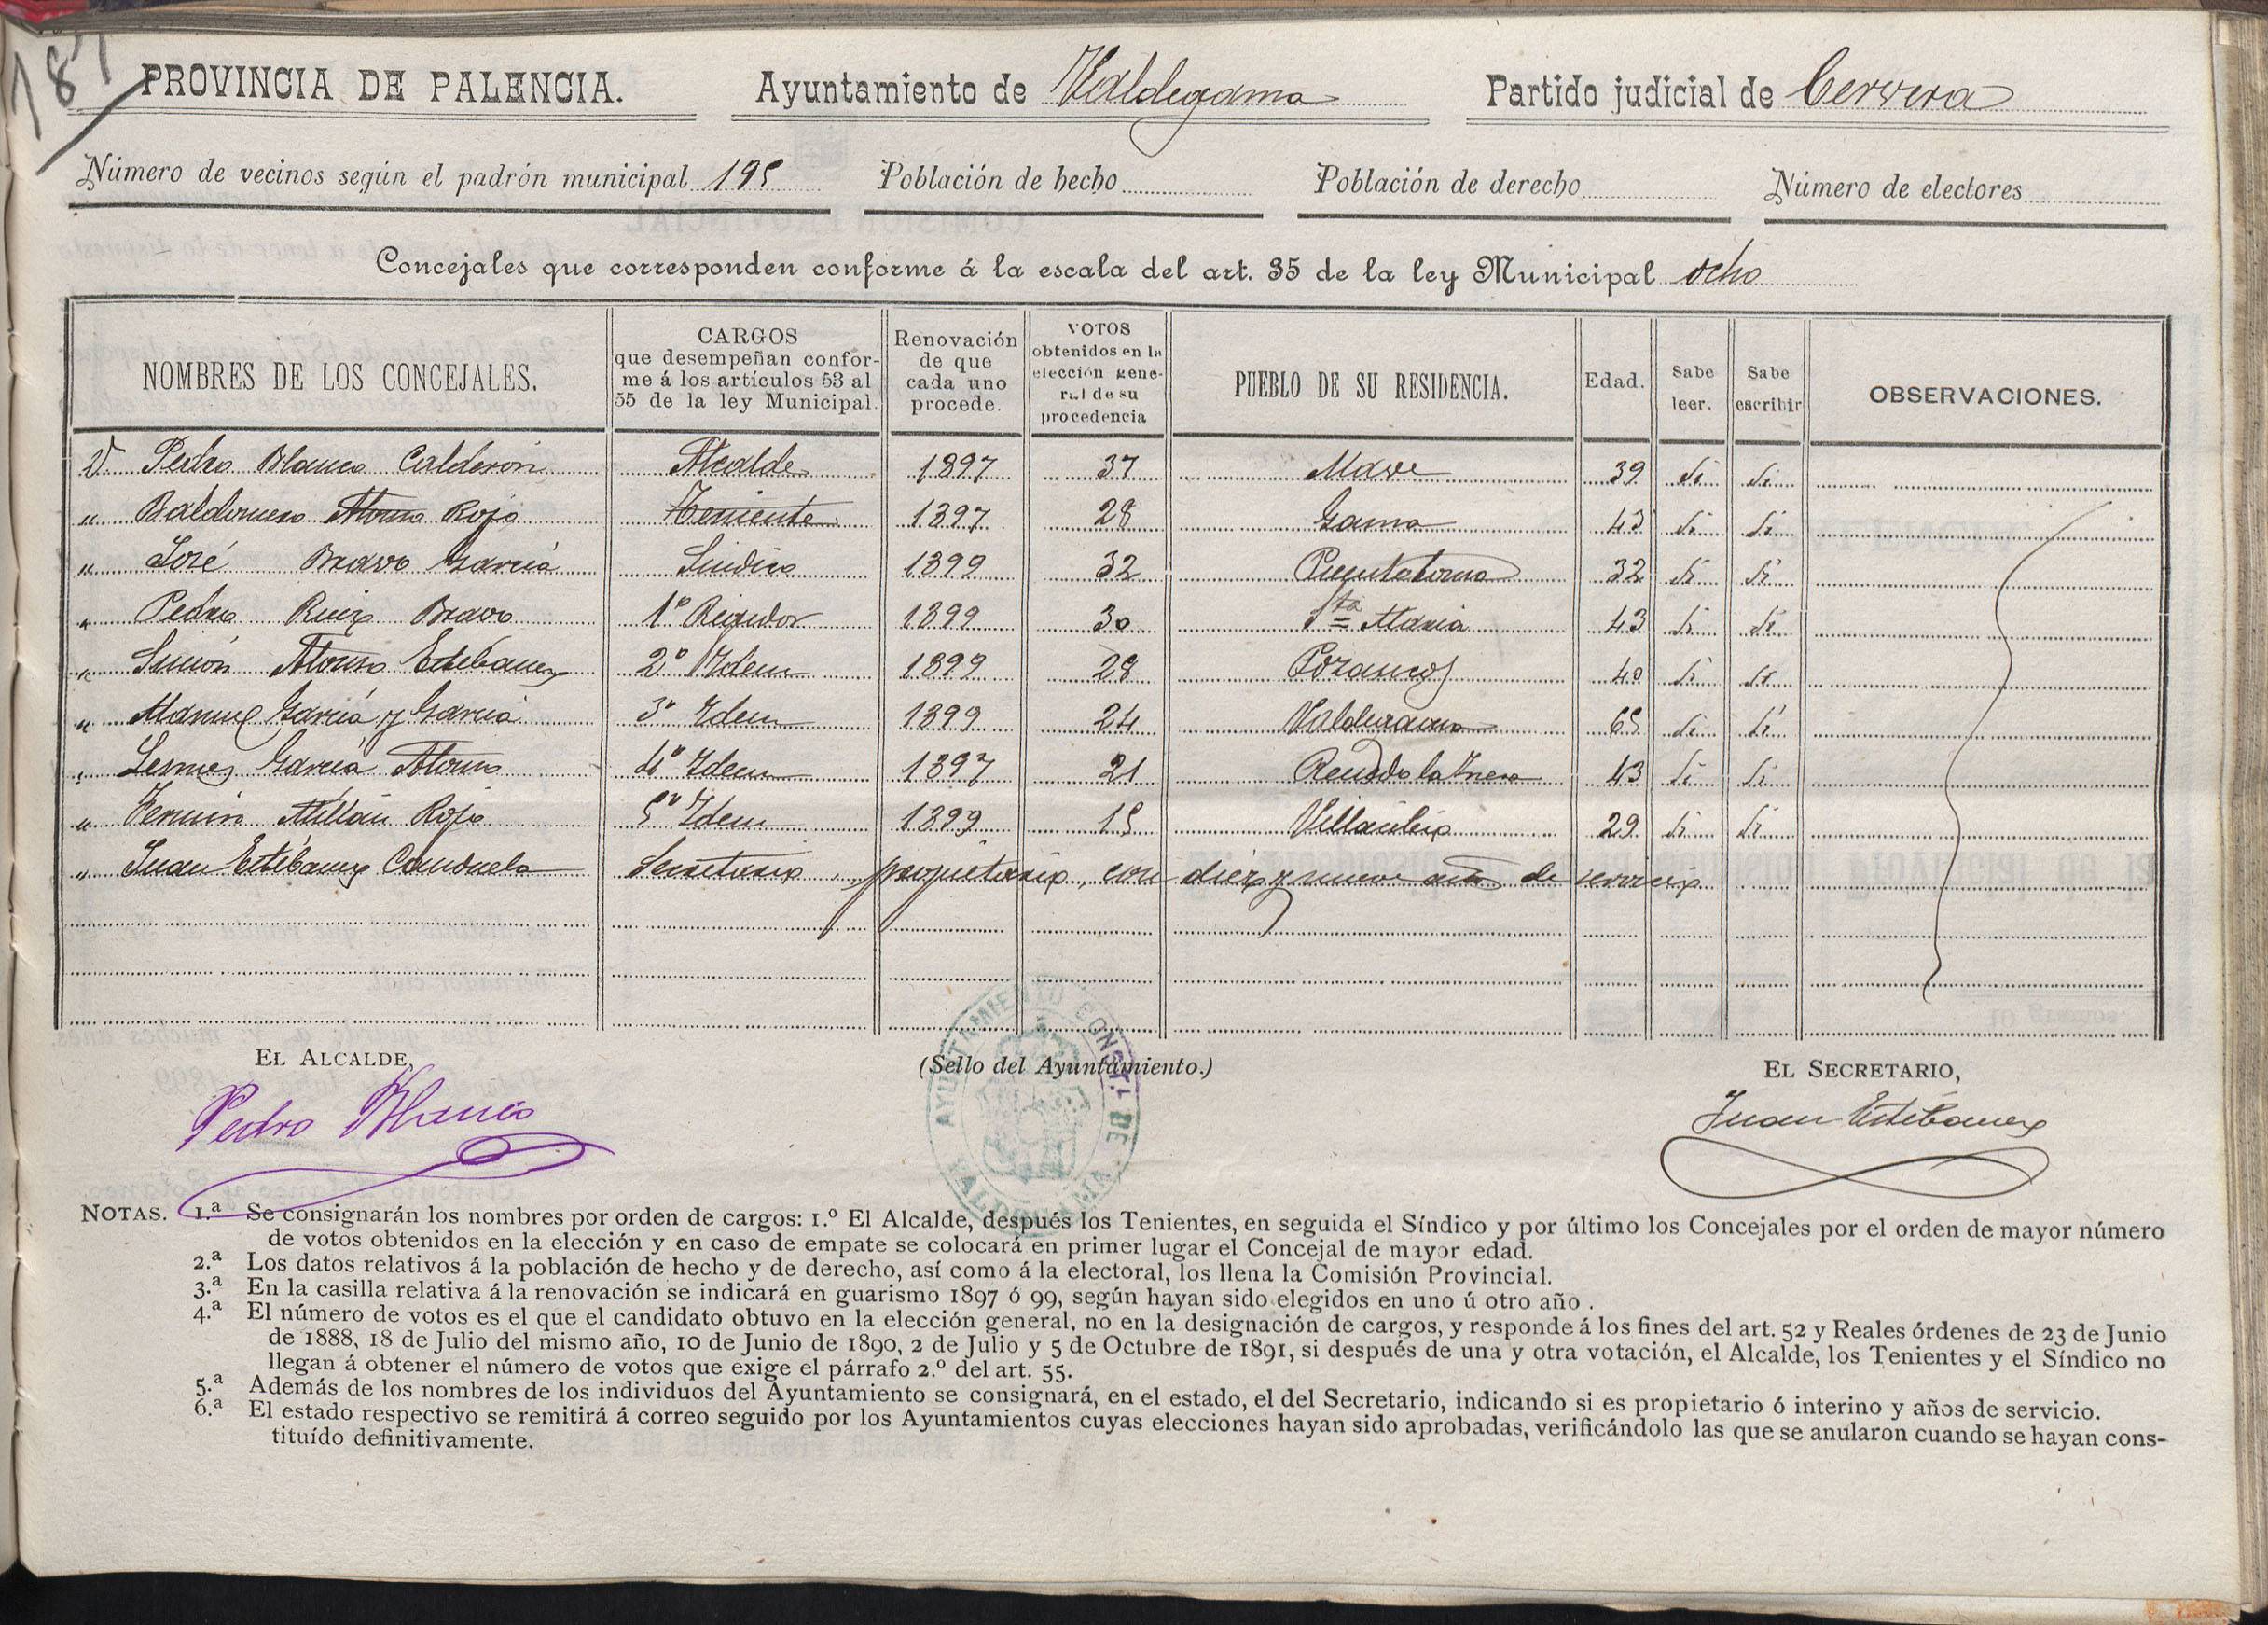 187
PROVINCIA DE PALENCIA. Ayuntamiento de Valdegama Partido judicial de Cervera
Número de vecinos según el padrón municipal 195 Población de hecho Población de derecho Número de electores
Concejales que corresponden conforme á la escala del art. 35 de la ley Municipal ocho
NOMBRES DE LOS CONCEJALES. CARGOS que desempeñan confor-me á los artículos 53 al 55 de la ley Municipal. Renovación de que cada uno procede. VOTOS obtenidos en la elección gene-ral de su procedencia PUEBLO DE SU RESIDENCIA. Edad. Sabe leer. Sabe escribir OBSERVACIONES.
D. Pedro Blanco Calderón Alcalde 1897 37 Mave 39 Si Si
" Baldomero Alonso Rojo Teniente 1897 28 Gama 43 Si Si
" José Bravo García Sindico 1899 32 Puentetoma 32 Si Si
" Pedro Ruiz Bravo 1º Regidor 1899 30 Sta Maria 43 Si Si
" Simón Alonso Estébanez 2º Idem 1899 28 Pozancos 40 Si Si
" Manuel García y García 3º Idem 1899 24 Valdegama 65 Si Si
" Lesmes García Alonso 4º Idem 1897 21 43 Si Si
" Fermín Millán Rojo 5º Idem 1899 15 29 Si Si
" Juan Estébanez Canduela Secretario propietario, con diez y nueve años de servicio
EL ALCALDE, (Sello del Ayuntamiento.) EL SECRETARIO,
Pedro Blanco Juan Estébanez
AYUNTAMIENTO CONST.L DE VALDEGAMA
NOTAS. 1.ª Se consignarán los nombres por orden de cargos: 1.º El Alcalde, después los Tenientes, en seguida el Síndico y por último los Concejales por el orden de mayor número
de votos obtenidos en la elección y en caso de empate se colocará en primer lugar el Concejal de mayor edad.
2.ª Los datos relativos á la población de hecho y de derecho, así como á la electoral, los llena la Comisión Provincial.
3.ª En la casilla relativa á la renovación se indicará en guarismo 1897 ó 99, según hayan sido elegidos en uno ú otro año .
4.ª El número de votos es el que el candidato obtuvo en la elección general, no en la designación de cargos, y responde á los fines del art. 52 y Reales órdenes de 23 de Junio
de 1888, 18 de Julio del mismo año, 10 de Junio de 1890, 2 de Julio y 5 de Octubre de 1891, si después de una y otra votación, el Alcalde, los Tenientes y el Síndico no
llegan á obtener el número de votos que exige el párrafo 2.º del art. 55.
5.ª Además de los nombres de los individuos del Ayuntamiento se consignará, en el estado, el del Secretario, indicando si es propietario ó interino y años de servicio.
6.ª El estado respectivo se remitirá á correo seguido por los Ayuntamientos cuyas elecciones hayan sido aprobadas, verificándolo las que se anularon cuando se hayan cons-
tituído definitivamente.